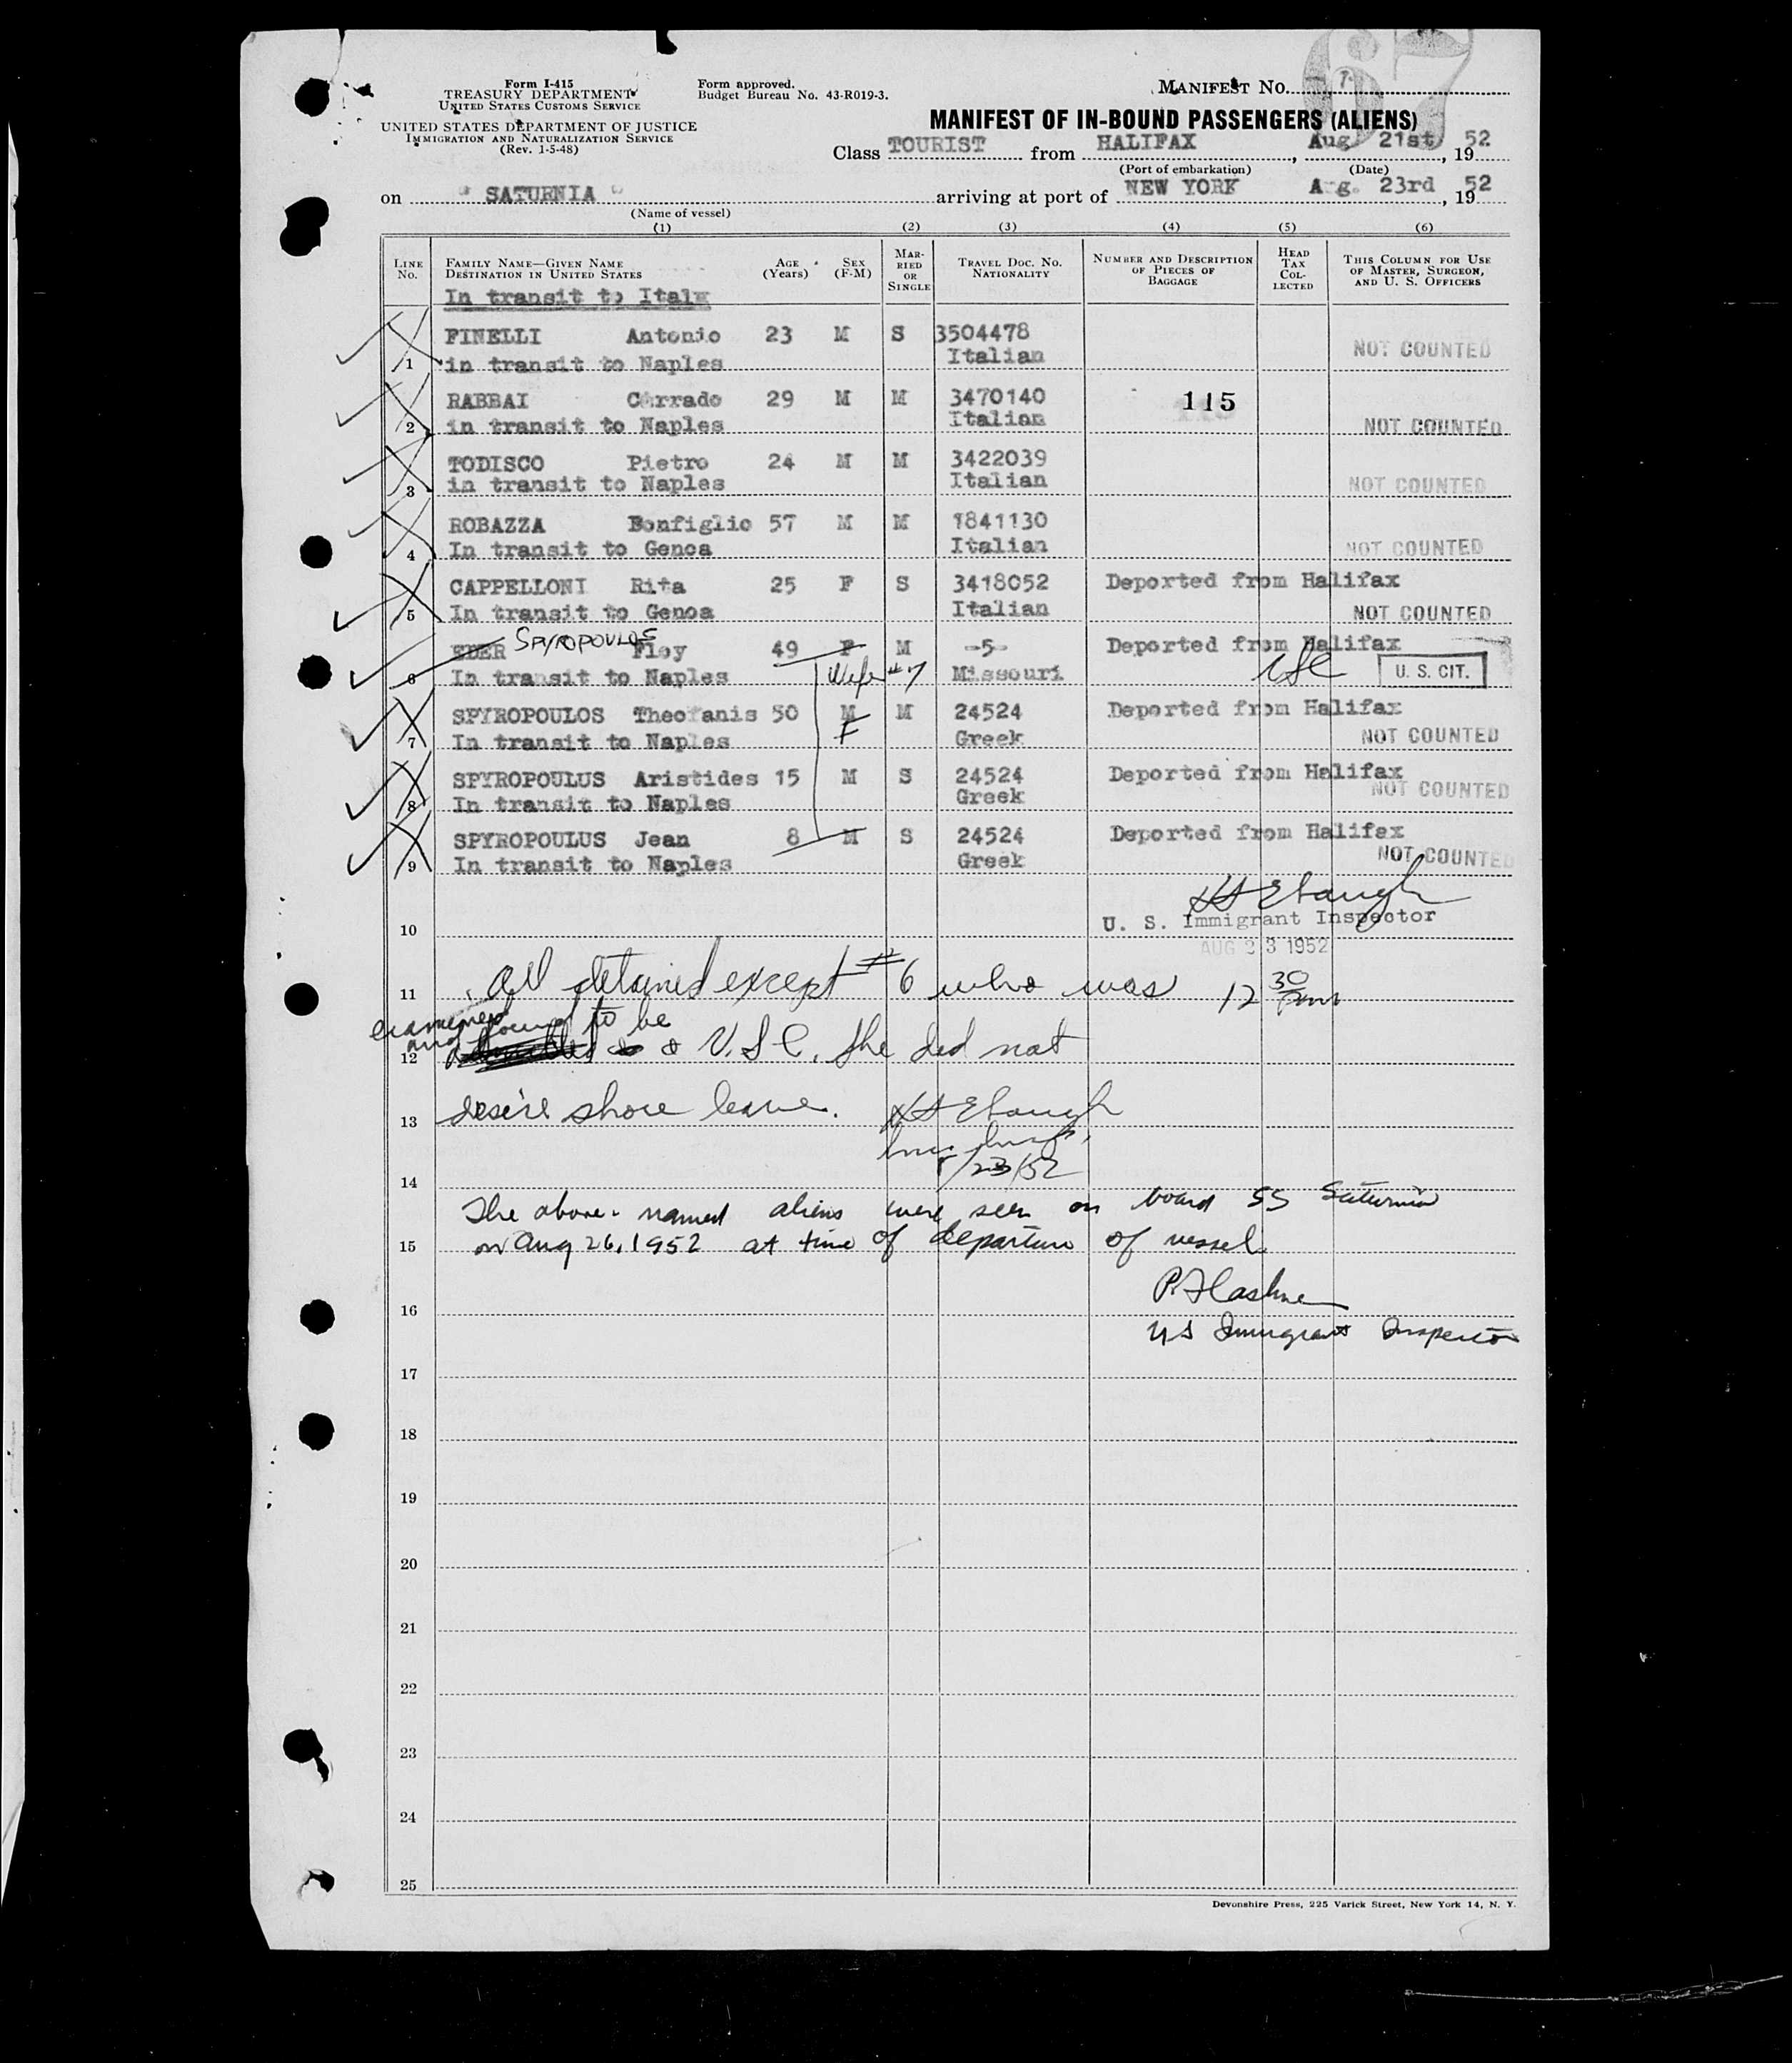 67
Form I-415
TREASURY DEPARTMENT
UNITED STATES CUSTOMS SERVICE
UNITED STATES DEPARTMENT OF JUSTICE
IMMIGRATION AND NATURALIZATION SERVICE
(Rev. 1-5-48)
Form approved.
Budget Bureau No. 43-R019-3.
MANIFEST No.
MANIFEST OF IN-BOUND PASSENGERS (ALIENS)
Class TOURIST from HALIFAX, Aug. 21st, 1952
(Port of embarkation) (Date)
on "SATURNIA" arriving at port of NEW YORK Aug. 23rd, 1952
(Name of vessel)
(1) (2) (3) (4) (5) (6)
LINE No. FAMILY NAME—GIVEN NAME DESTINATION IN UNITED STATES AGE (Years) SEX (F-M) MARRIED OR SINGLE TRAVEL DOC. No. NATIONALITY NUMBER AND DESCRIPTION OF PIECES OF BAGGAGE HEAD TAX COLLECTED THIS COLUMN FOR USE OF MASTER, SURGEON, AND U. S. OFFICERS
In transit to Italy
FINELLI Antonio 23 M S 3504478
1 in transit to Naples Italian NOT COUNTED
RABBAI Corrado 29 M M 3470140 115
2 in transit to Naples Italian NOT COUNTED
TODISCO Pietro 24 M M 3422039
3 in transit to Naples Italian NOT COUNTED
ROBAZZA Bonfiglio 57 M M 1841130
4 In transit to Genoa Italian NOT COUNTED
CAPPELLONI Rita 25 F S 3418052 Deported from Halifax
5 In transit to Genoa Italian NOT COUNTED
EDER SPYROPOULOS Floy 49 F M -5- Deported from Halifax
6 In transit to Naples Wife #7 Missouri USC U. S. CIT.
SPYROPOULOS Theofanis 50 M M 24524 Deported from Halifax
7 In transit to Naples F Greek NOT COUNTED
SPYROPOULUS Aristides 15 M S 24524 Deported from Halifax
8 In transit to Naples Greek NOT COUNTED
SPYROPOULUS Jean 8 M S 24524 Deported from Halifax
9 In transit to Naples Greek NOT COUNTED
U. S. Immigrant Inspector
10
AUG 23 1952
11 All detained except #6 who was 12 30 pm
examined and found to be
12 a U.S.C. She did not
13 desire shore leave.
8/23/52
14
The above-named aliens were seen on board SS Saturnia
15 on Aug 26, 1952 at time of departure of vessel
16
US Immigrant Inspector
17
18
19
20
21
22
23
24
25
Devonshire Press, 225 Varick Street, New York 14, N. Y.